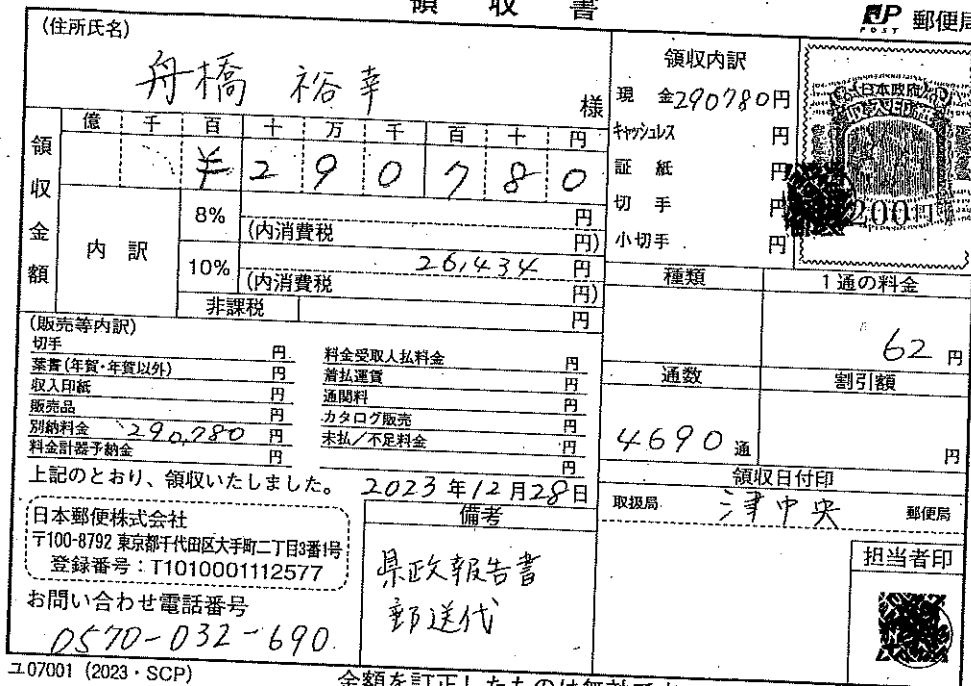 領収書
JP POST 郵便局
(住所氏名)
舟橋 裕幸 様
領収金額
億 千 百 十 万 千 百 十 円
¥ 2 9 0 7 8 0
内訳
8% 円
(内消費税 円)
10% 26,434 円
(内消費税 円)
非課税 円
領収内訳
現金 290780円
キャッシュレス 円
証紙 円
切手 円
小切手 円
日本政府
200円
種類
1通の料金
62 円
通数
割引額
4690 通
円
(販売等内訳)
切手 円
葉書(年賀・年賀以外) 円
収入印紙 円
販売品 円
別納料金 290,780 円
料金計器予納金 円
料金受取人払料金 円
着払運賃 円
通関料 円
カタログ販売 円
未払/不足料金 円
円
上記のとおり、領収いたしました。 2023年12月28日
日本郵便株式会社
〒100-8792 東京都千代田区大手町二丁目3番1号
登録番号:T1010001112577
お問い合わせ電話番号
0570-032-690
備考
県政報告書
郵送代
領収日付印
取扱局 津中央 郵便局
担当者印
ユ07001 (2023・SCP)
金額を訂正したものは無効です